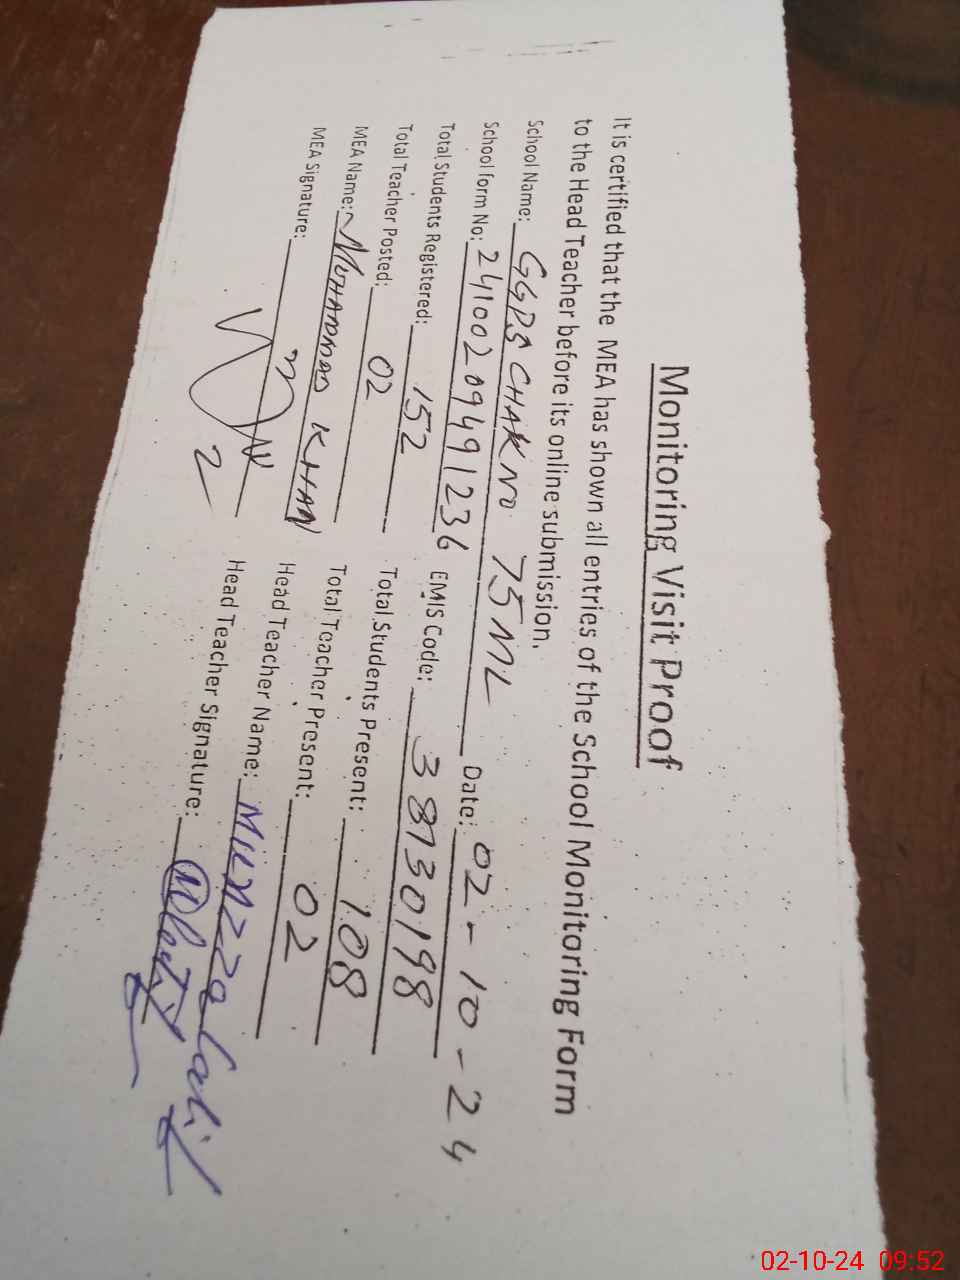 Monitoring Visit Proof
It is certified that the MEA has shown all entries of the School Monitoring Form
to the Head Teacher before its online submission.
School Name: GGPS CHAK NO 75 ML Date: 02-10-24
School form No: 241002094911236 EMIS Code: 38730198
Total Students Registered: 152 Total Students Present: 108
Total Teacher Posted: 02 Total Teacher Present: 02
MEA Name: MUHAMMAD KHAN Head Teacher Name:
MEA Signature: Head Teacher Signature:
02-10-24 09:52